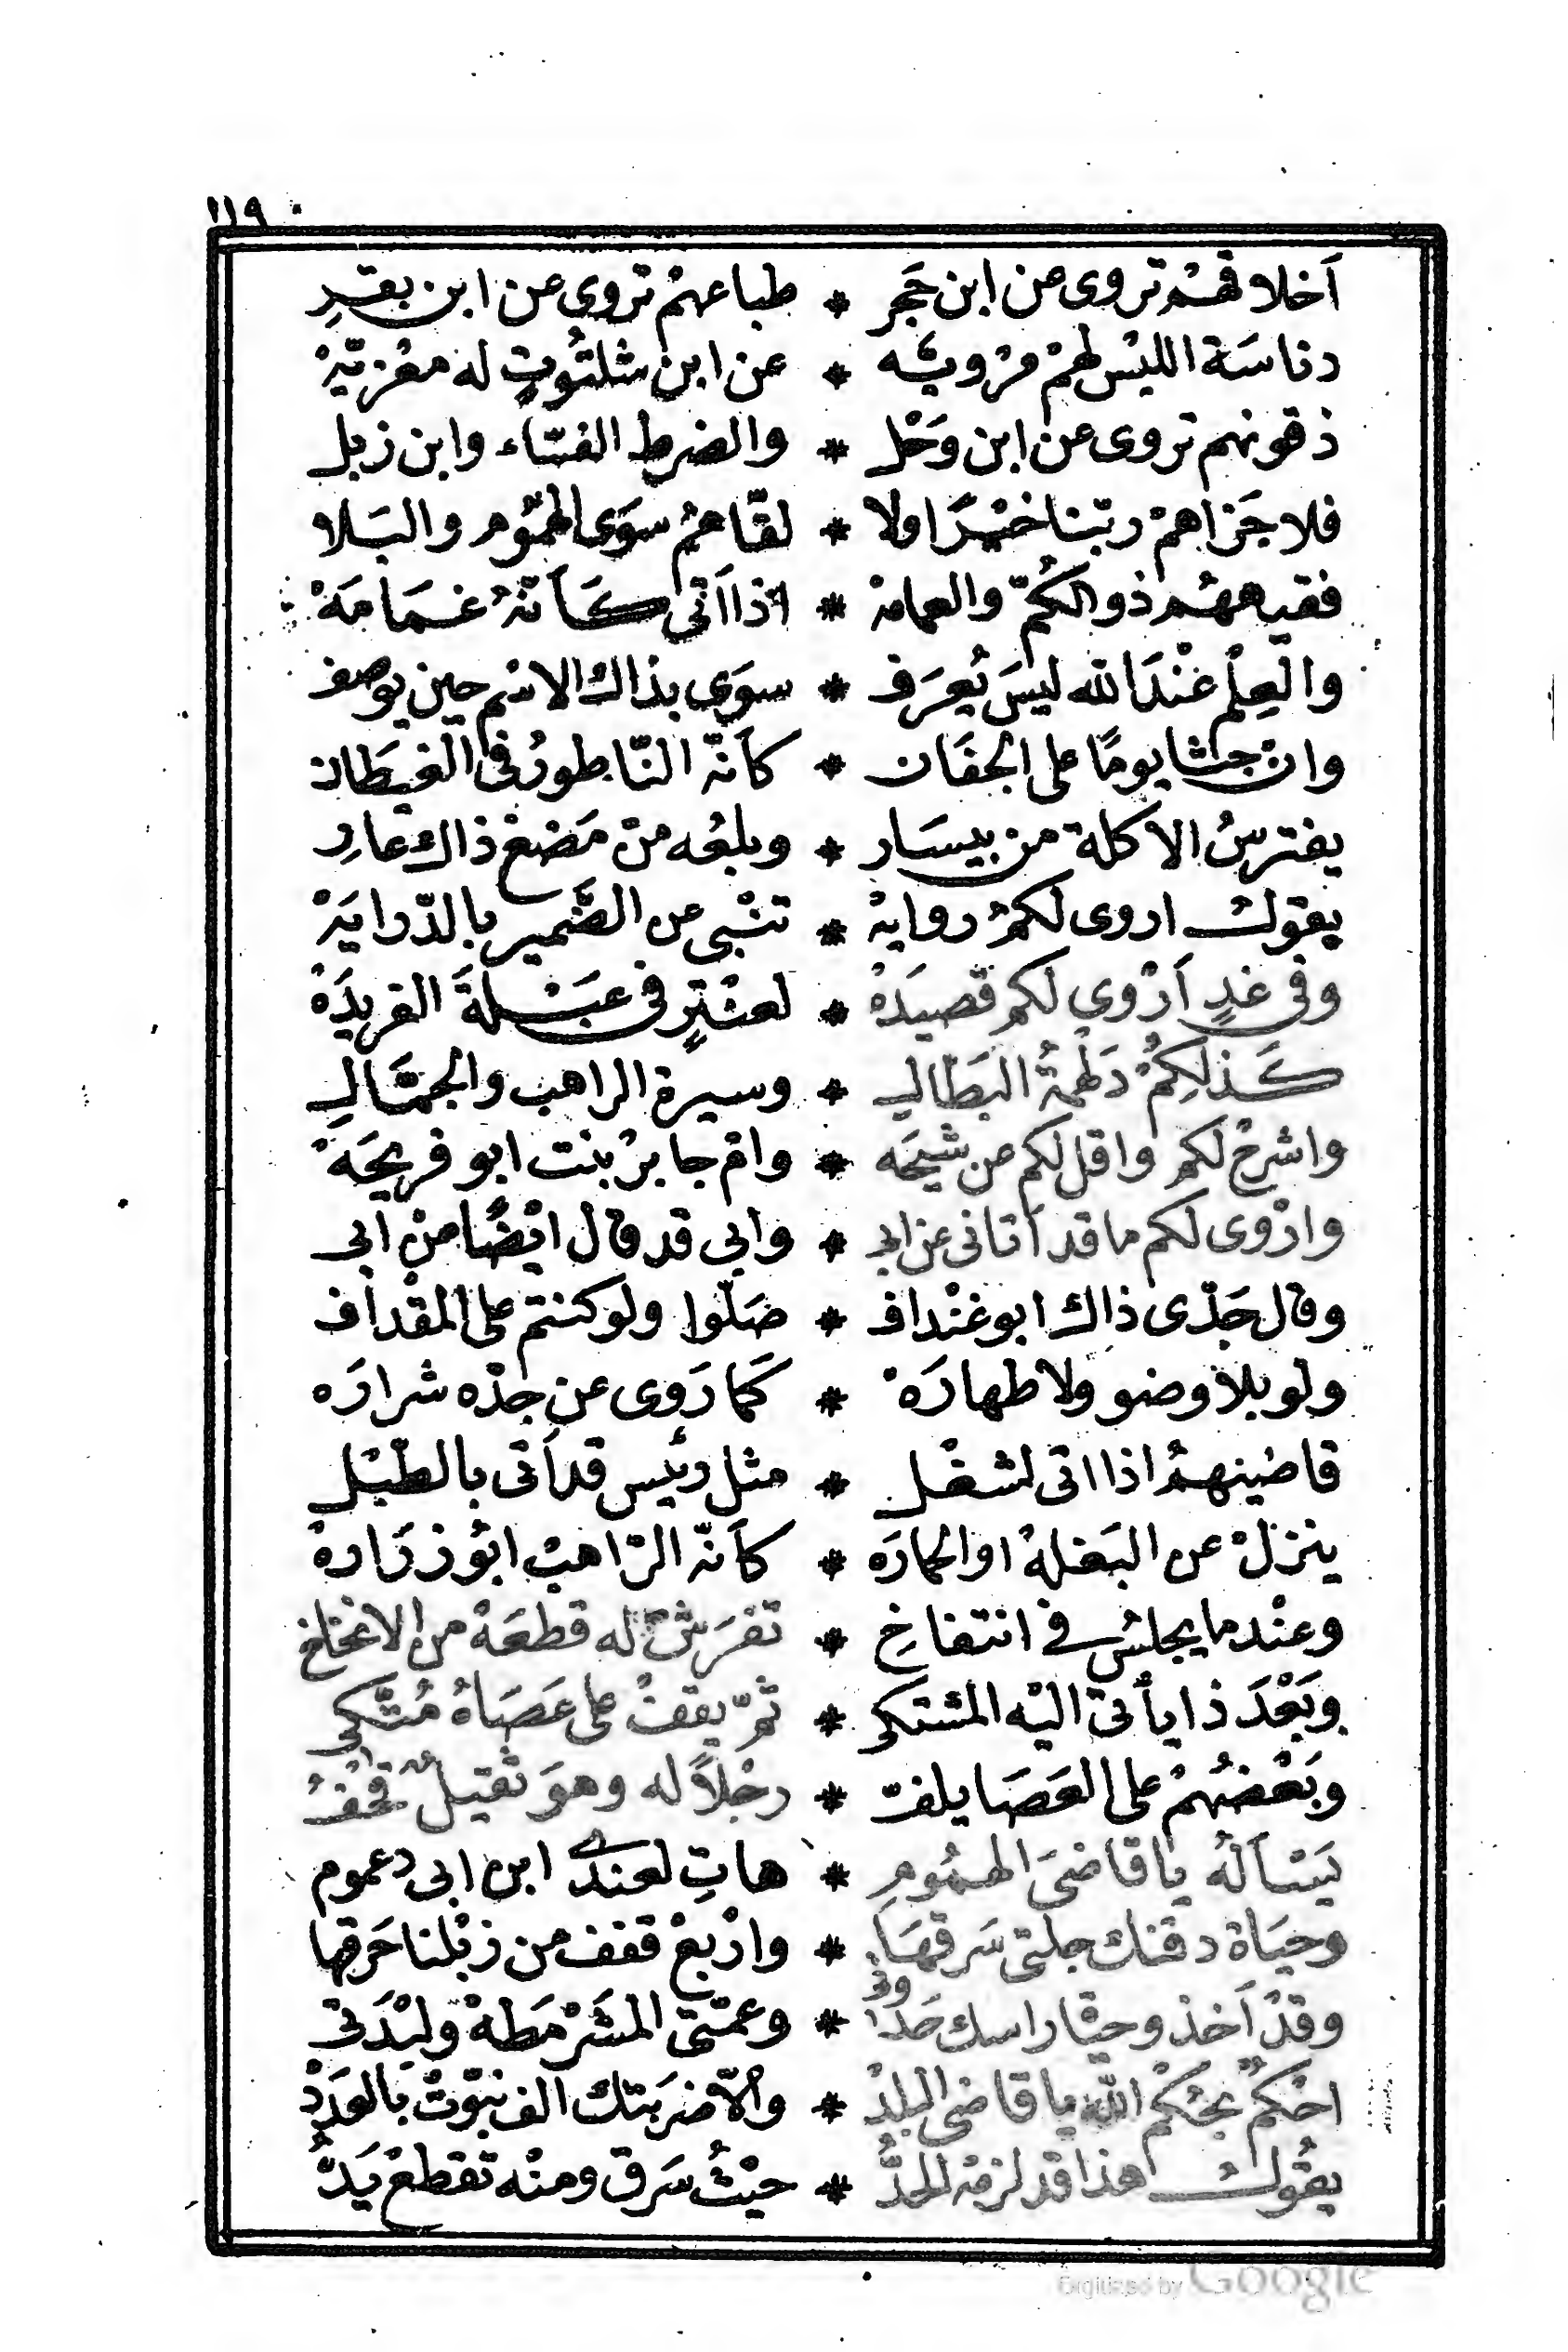 ١١٩
أخلاقهم تروى عن ابن حَجر * طباعهمْ تروى عن ابن بقرِ
دناسَة اللبْس لهمْ مرْويّه * عن ابن شلتُوتٍ له معْزيّهْ
ذقونهم تروى عن ابن وَحْل * والضرط الفسّاء وابن زبل
فلا جَزاهمْ ربّنا خيْرًا ولا * لقّاهمُ سوَى الهمُوم والبَلا
فقيههُم ذو الكُمّ والعمامهْ * اذا أتى كَأنّهُ غمَامَهْ
والعِلمْ عنْدَ الله ليسَ يُعرَف * سوَى بذاك الاسْم حين يوصف
وانْ جثا يومًا على الجفَان * كأنّه النّاطورُ فى الغيطَان
يفترسُ الاكلة من بيسَار * وبلعُه منْ مَضغ ذاك عارِ
يقولُ اروى لكمْ روايهْ * تنْبى عن الضَّمير بالدّرايَهْ
وفى غدٍ أرْوى لكم قصيدَهْ * لعنْترٍ فى عبْلةَ الفريدَهْ
كَذلِكمْ دَلْهمةُ البَطّالِ * وسيرة الراهب والجمَّالِ
واشرحْ لكم واقل لكم عن شيحَه * وامْ جابرْ بنت ابو فريحَهْ
وارْوى لكم ما قد أتانى عن ابى * وابى قد قال ايْضًا منْ ابى
وقال جَدّى ذاك ابو غنْداف * صَلّوا ولو كنتم على المقْداف
ولو بلا وضو ولا طهارَهْ * كَما رَوى عن جدّه شرارَه
قاضينهمُ اذا اتى لشغْل * مثل رئيس قد أتى بالطّبْل
ينزلْ عن البَغلهْ او الحمارَه * كأنّه الرّاهبْ ابُو زرَارهْ
وعنْدما يجلسُ فى انتفاخِ * تفرَشْ له قطعَهْ من الانخاخ
وبَعْدَ ذا يأتى اليْه المشتكى * ثمّ يقفْ على عَصَاهُ مُتّكى
وبَعْضهُمْ على العَصَا يلفّ * رجْلاً له وهوَ ثقيلٌ قحْفُ
يَسْألهُ يا قاضىَ الهمُومِ * هاتِ لعندى ابن ابى دعموم
وحيَاة دقنك جلتى سَرقهَا * وارْبعْ قفف من زبْلنا حَرقها
وقدْ أخذ وحيّا راسك حَدْوتى * وعمّتى المشَرْمَطهْ ولبْدَتى
احْكمْ بحُكمْ الله يا قاضى البلدْ * والاّ ضرَبتك الف نبّوتْ بالعَدَدْ
يقُولُ هذا قد لزمهْ الحدُّ * حيْثُ سَرق ومنْه تقطعْ يَدُّ
Digitized by Google